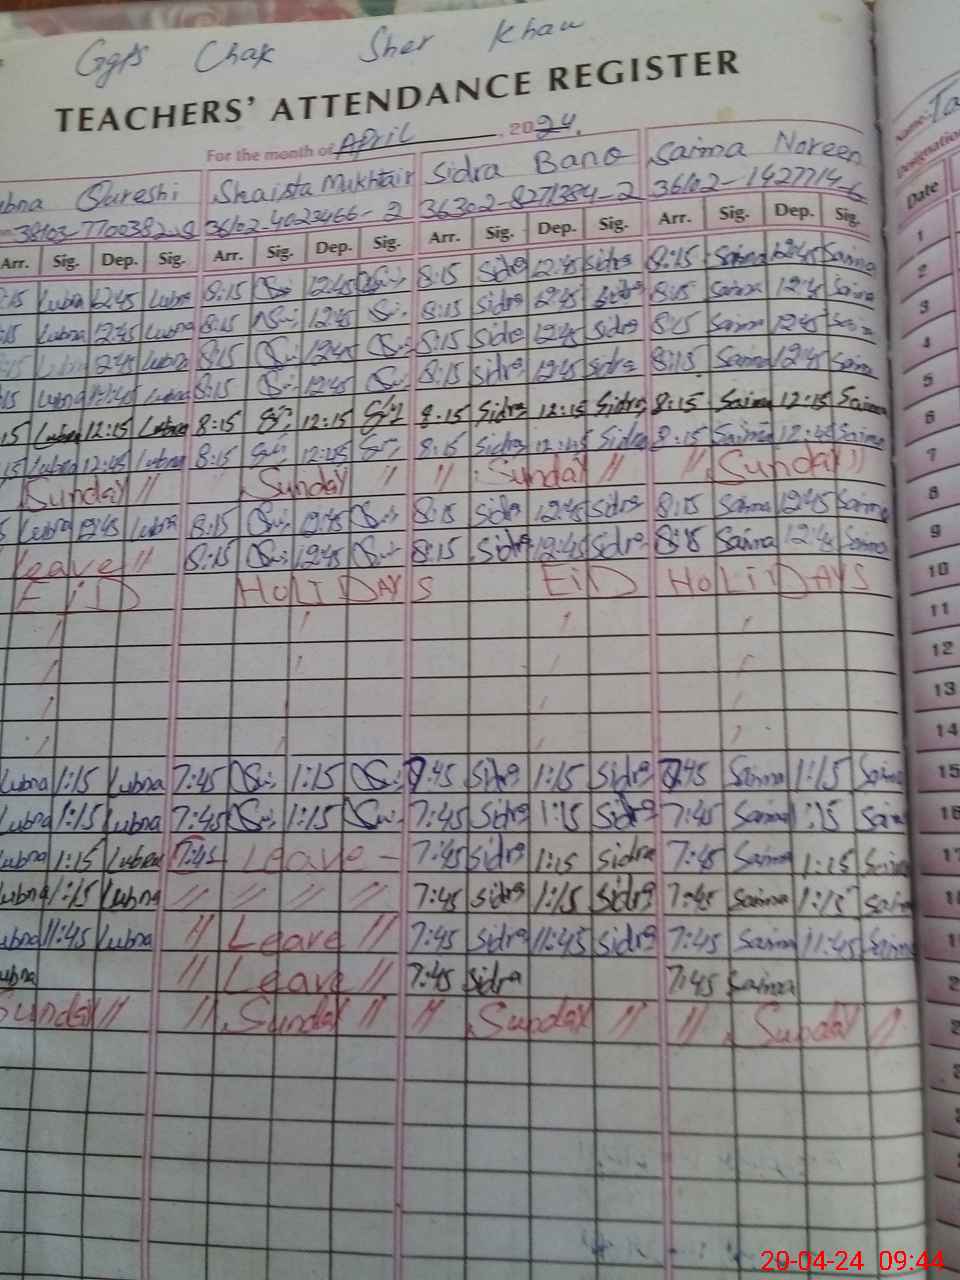 Ggps Chak Sher Khan
TEACHERS' ATTENDANCE REGISTER
For the month of April, 2024.
Name:
ubna Qureshi Shaista Mukhtair Sidra Bano Saima Noreen
Designation
38103-7700382-8 36102-4023466-2 36302-8271384-2 36102-1427714-6
Date
Arr. Sig. Dep. Sig. Arr. Sig. Dep. Sig. Arr. Sig. Dep. Sig. Arr. Sig. Dep. Sig.
:15 Lubna 12:45 Lubna 8:15 12:45 8:15 Sidra 12:45 Sidra 8:15 Saima 12:45 Saima 1
:15 Lubna 12:45 Lubna 8:15 12:45 8:15 Sidra 12:45 Sidra 8:15 Saima 12:45 Saima 2
Lubna 12:45 Lubna 8:15 12:45 8:15 Sidra 12:45 Sidra 8:15 Saima 12:45 Saima 3
15 Lubna 12:45 Lubna 8:15 12:45 8:15 Sidra 12:45 Sidra 8:15 Saima 12:45 Saima 4
15 Lubna 12:15 Lubna 8:15 12:15 8:15 Sidra 12:15 Sidra 8:15 Saima 12:15 Saima 5
15 Lubna 12:45 Lubna 8:15 12:45 8:15 Sidra 12:45 Sidra 8:15 Saima 12:45 Saima 6
Sunday // Sunday // // Sunday // // Sunday // 7
5 Lubna 12:45 Lubna 8:15 12:45 8:15 Sidra 12:45 Sidra 8:15 Saima 12:45 Saima 8
Leave // 8:15 12:45 8:15 Sidra 12:45 Sidra 8:15 Saima 12:45 Saima 9
EiD HOLiDAYS EiD HOLiDAYS 10
11
12
13
14
Lubna 1:15 Lubna 7:45 1:15 7:45 Sidra 1:15 Sidra 7:45 Saima 1:15 Saima 15
Lubna 1:15 Lubna 7:45 1:15 7:45 Sidra 1:15 Sidra 7:45 Saima 1:15 Saima 16
Lubna 1:15 Lubna 7:45 Leave - 7:45 Sidra 1:15 Sidra 7:45 Saima 1:15 Saima 17
ubna 1:15 Lubna // // // // 7:45 Sidra 1:15 Sidra 7:45 Saima 1:15 Saima
ubna 11:45 Lubna // Leave // 7:45 Sidra 11:45 Sidra 7:45 Saima 11:45 Saima
ubna // Leave // 7:45 Sidra 7:45 Saima
Sunday // // Sunday // // Sunday // // Sunday //
20-04-24 09:44